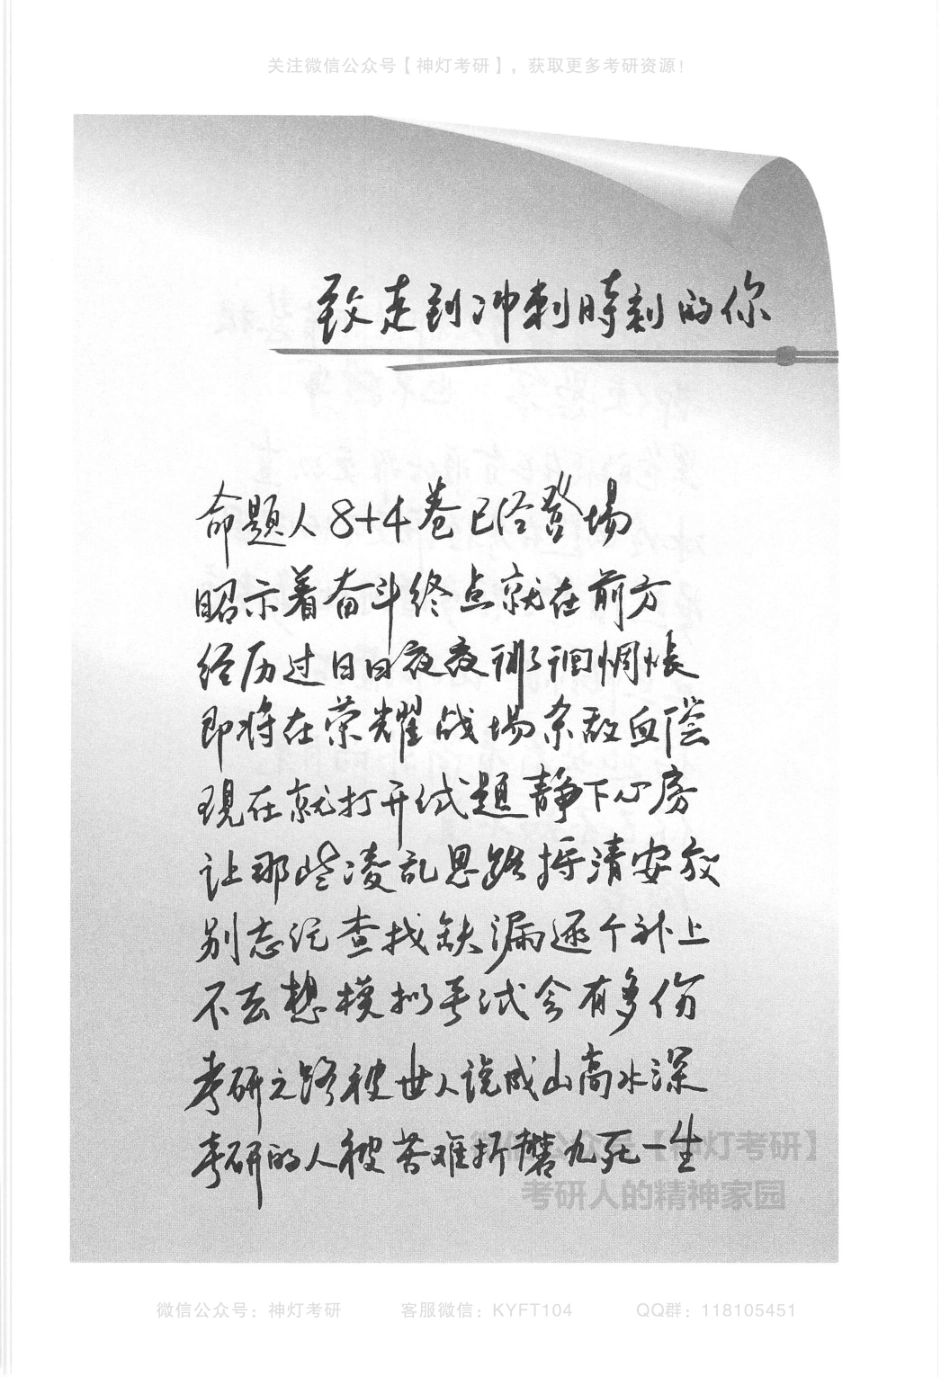 关注微信公众号【神灯考研】，获取更多考研资源！
致走到冲刺時刻的你
命题人8+4卷已经登場
昭示着奋斗终点就在前方
经历过日日夜夜彷徊惆怅
即将在荣耀战場杀敌血偿
現在就打开试题静下心房
让那些凌乱思路捋清安放
别忘记查找缺漏逐个补上
不去想模拟考试会有多伤
考研之路被世人说成山高水深
考研的人被苦难折磨九死一生
微信公众号【神灯考研】
考研人的精神家园
微信公众号：神灯考研 客服微信：KYFT104 QQ群：118105451